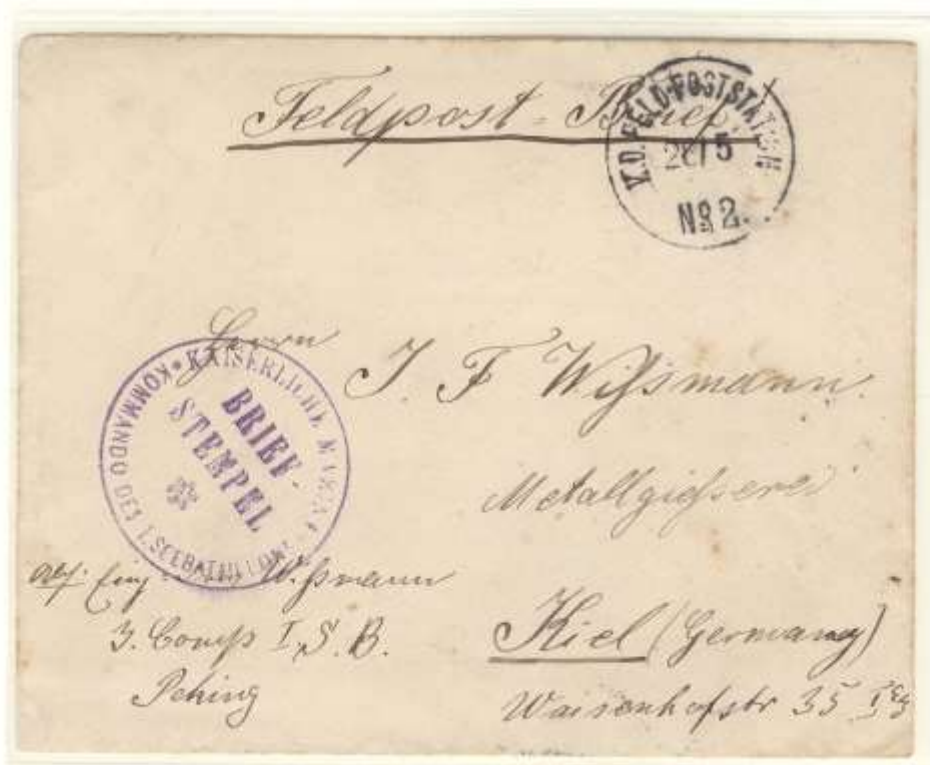 Feldpost-Brief
K.D. FELD-POSTSTATION
20/5
No 2.
Herrn
J. F Wißmann
Metallgießerei
Kiel (Germany)
Waisenhofstr 35
KAISERLICHE MARINE
KOMMANDO DES I. SEEBATAILLONS
BRIEF
STEMPEL
Abs: Wißmann
3. Comp I. S. B.
Peking